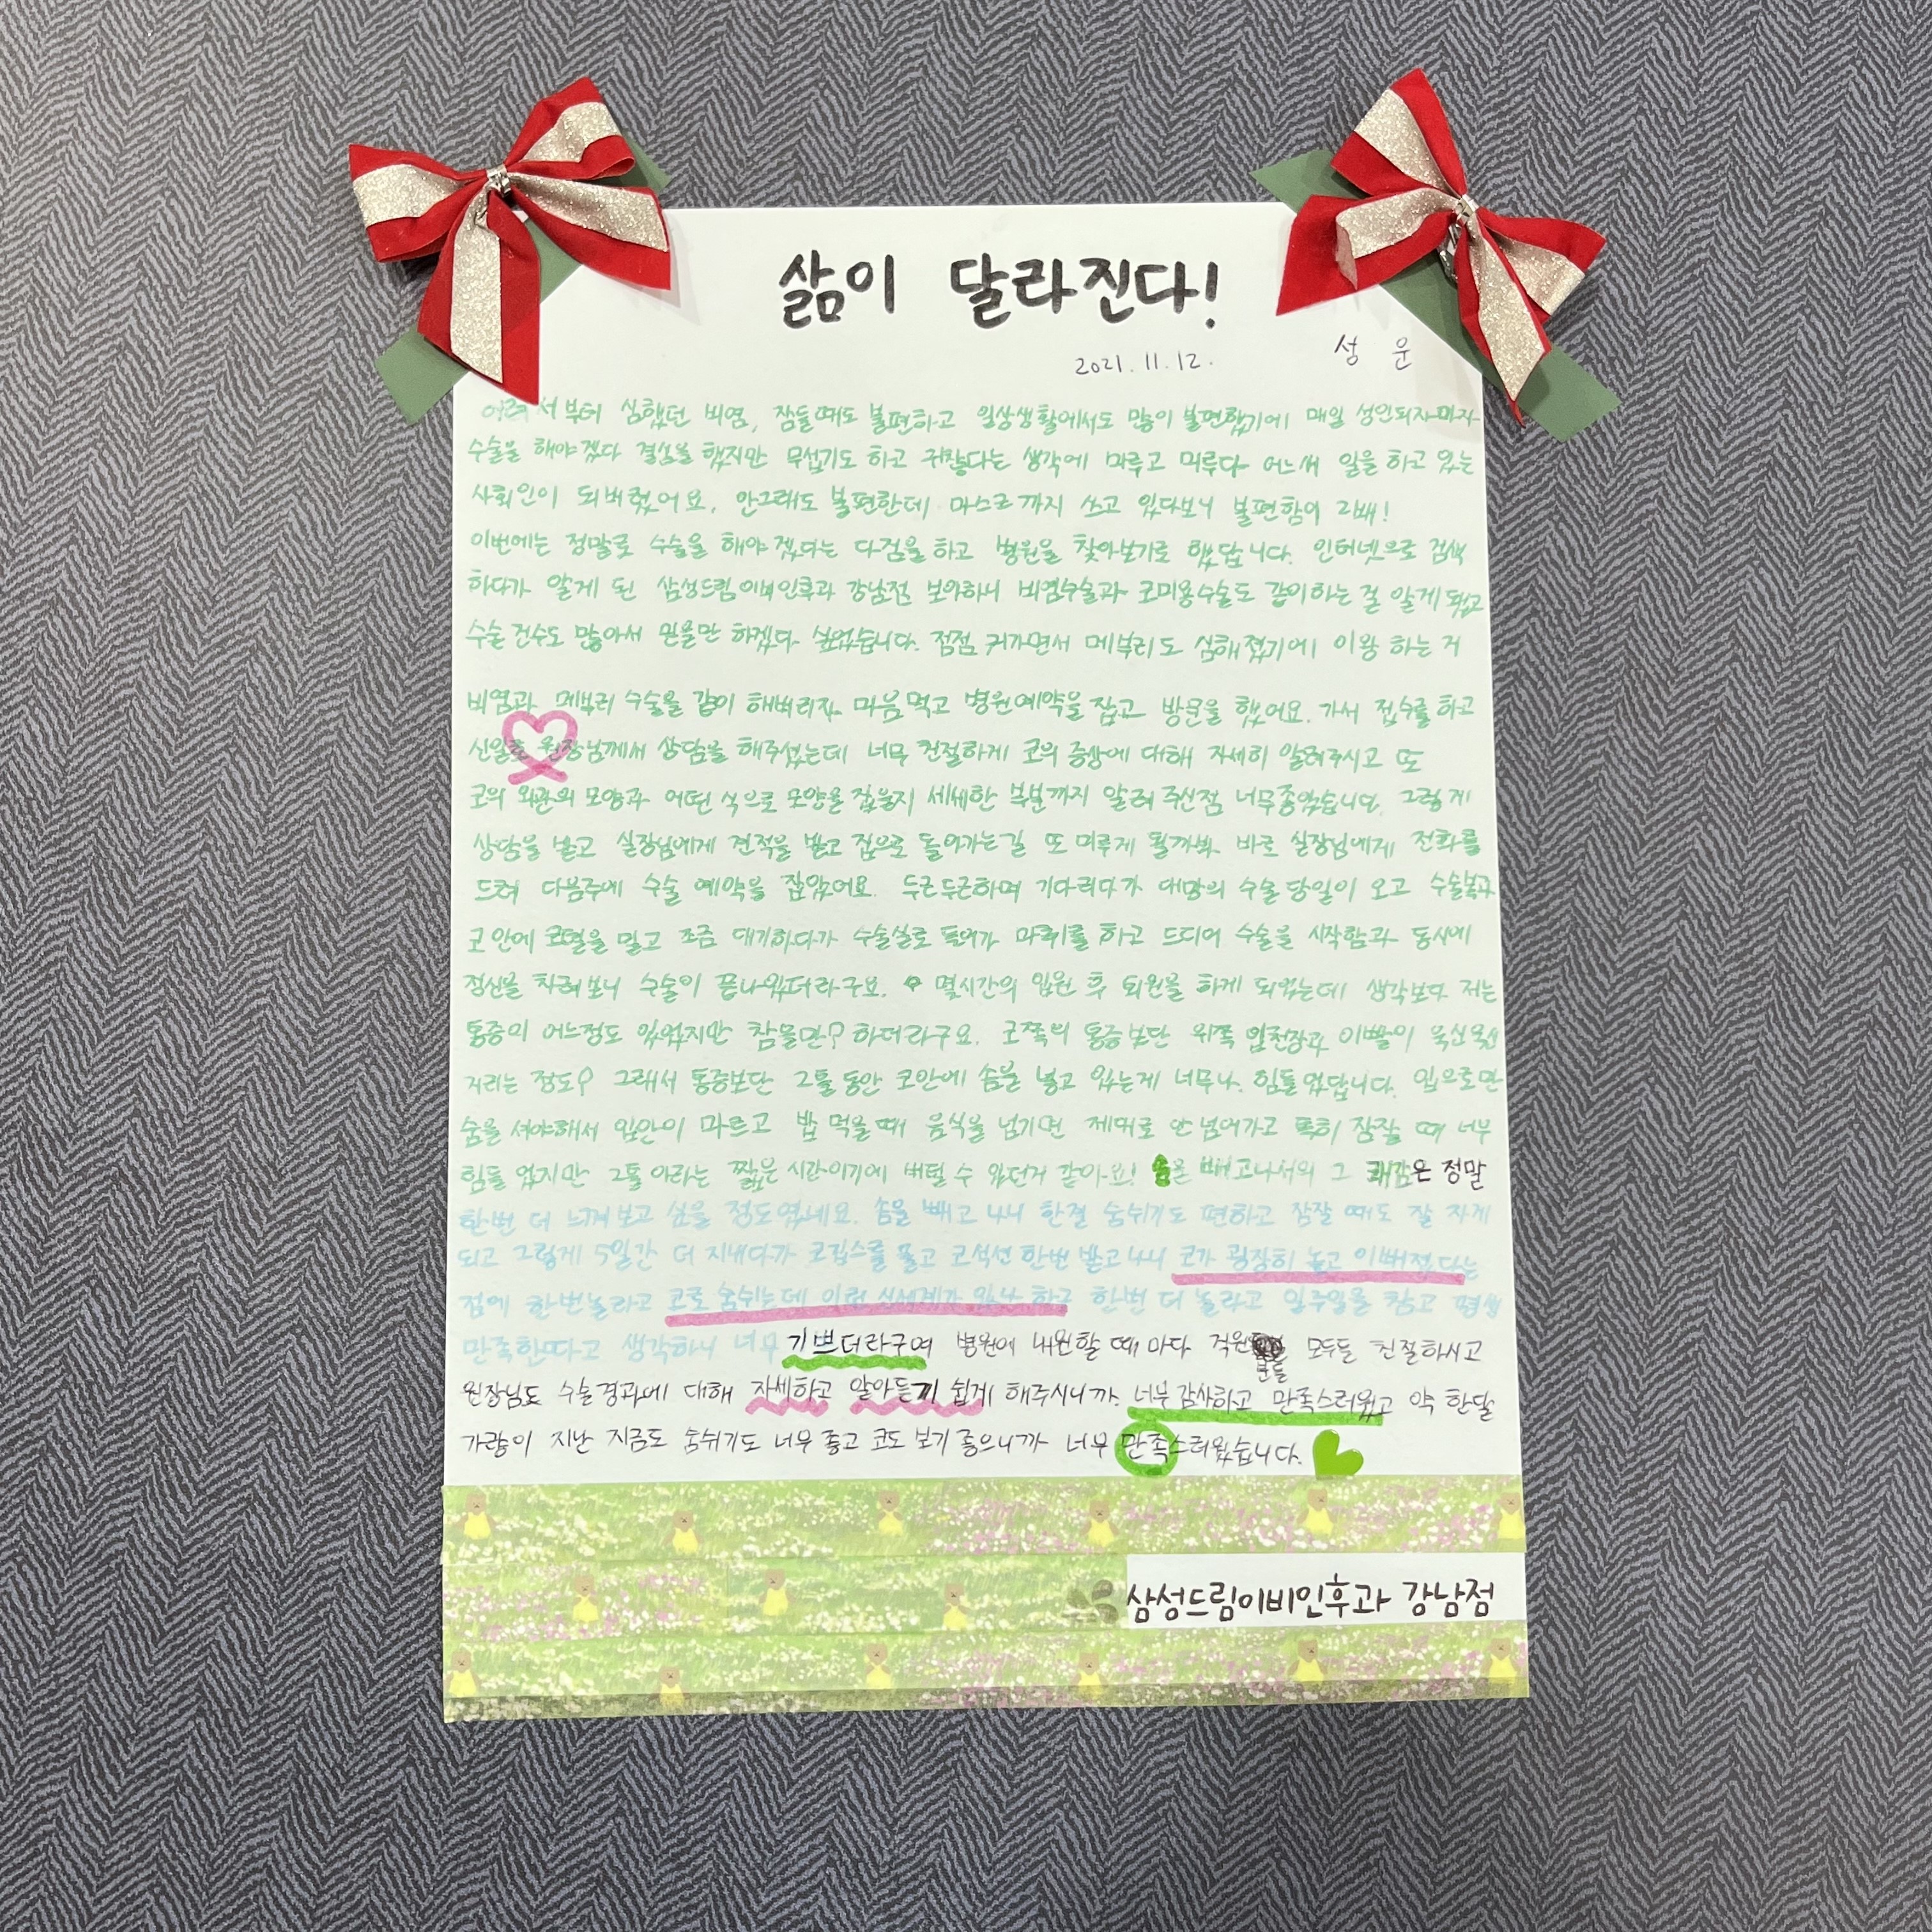 삶이 달라진다!
2021.11.12. 성 운
어려서부터 심했던 비염, 잠들때도 불편하고 일상생활에서도 많이 불편했기에 매일 성인되자마자
수술을 해야겠다 결심을 했지만 무섭기도 하고 귀찮다는 생각에 미루고 미루다 어느새 일을 하고 있는
사회인이 되버렸어요. 안그래도 불편한데 마스크까지 쓰고 있다보니 불편함이 2배!
이번에는 정말로 수술을 해야겠다는 다짐을 하고 병원을 찾아보기로 했답니다. 인터넷으로 검색
하다가 알게 된 삼성드림이비인후과 강남점 보아하니 비염수술과 코미용수술도 같이하는 걸 알게 됐고
수술건수도 많아서 믿을만 하겠다 싶었습니다. 점점 커가면서 메부리도 심해졌기에 이왕 하는 거
비염과 메부리 수술을 같이 해버리자 마음먹고 병원예약을 잡고 방문을 했어요. 가서 접수를 하고
신일호 원장님께서 상담을 해주셨는데 너무 친절하게 코의 증상에 대해 자세히 알려주시고 또
코의 외관의 모양과 어떤 식으로 모양을 잡을지 세세한 부분까지 알려 주신점 너무좋았습니다. 그렇게
상담을 받고 실장님에게 견적을 받고 집으로 돌아가는길 또 미루게 될까봐 바로 실장님에게 전화를
드려 다음주에 수술 예약을 잡았어요. 두근두근하며 기다리다가 대망의 수술 당일이 오고 수술복과
코안에 코털을 밀고 조금 대기하다가 수술실로 들어가 마취를 하고 드디어 수술을 시작함과 동시에
정신을 차려보니 수술이 끝나있더라구요. 몇시간의 입원 후 퇴원을 하게 되었는데 생각보다 저는
통증이 어느정도 있었지만 참을만? 하더라구요. 코쪽의 통증보단 위쪽 입천장과 이빨이 욱신욱신
거리는 정도? 그래서 통증보단 2틀 동안 코안에 솜을 넣고 있는게 너무나 힘들었답니다. 입으로만
숨을 쉬야해서 입안이 마르고 밥 먹을 때 음식을 넘기면 제대로 안 넘어가고 특히 잠잘 때 너무
힘들었지만 2틀이라는 짧은 시간이기에 버틸 수 있던거 같아요! 솜을 빼고나서의 그 쾌감은 정말
한번 더 느껴보고 싶을 정도였네요. 솜을 빼고 나니 한결 숨쉬기도 편하고 잠잘 때도 잘 자게
되고 그렇게 5일간 더 지내다가 코깁스를 풀고 코석션 한번 받고나니 코가 굉장히 높고 이뻐졌다는
점에 한번놀라고 코로 숨쉬는데 이런 신세계가 있나 하고 한번 더 놀라고 일주일을 참고 평생
만족한다고 생각하니 너무 기쁘더라구여 병원에 내원할 때 마다 직원분들 모두들 친절하시고
원장님도 수술경과에 대해 자세하고 알아듣기 쉽게 해주시니까 너무 감사하고 만족스러웠고 약 한달
가량이 지난 지금도 숨쉬기도 너무 좋고 코도 보기 좋으니까 너무 만족스러웠습니다.
삼성드림이비인후과 강남점